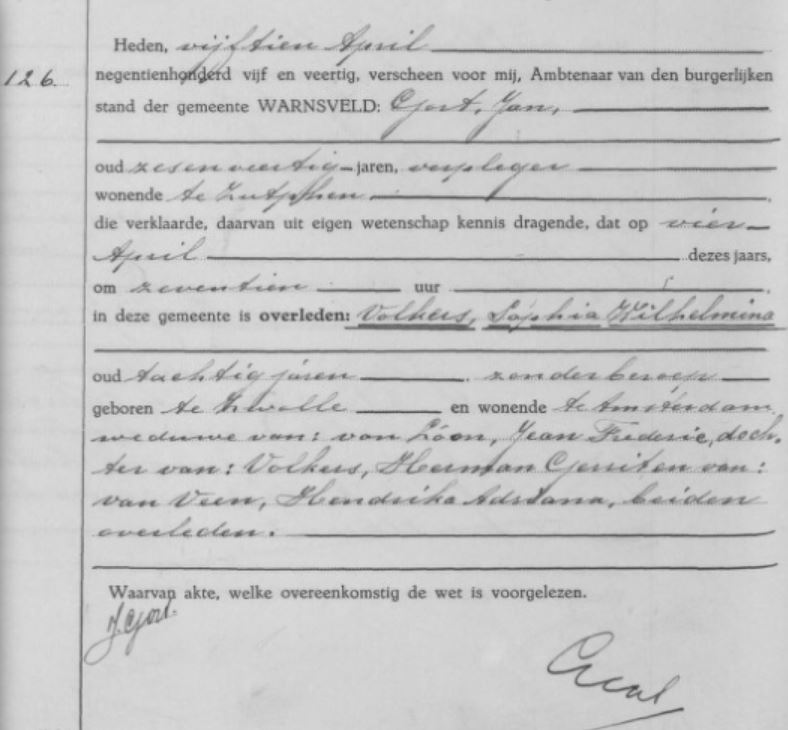 Heden, vijftien April
126.
negentienhonderd vijf en veertig, verscheen voor mij, Ambtenaar van den burgerlijken
stand der gemeente WARNSVELD: Gort, Jan,
oud zesenveertig jaren, verpleger
wonende te Zutphen
die verklaarde, daarvan uit eigen wetenschap kennis dragende, dat op vier
April dezes jaars,
om zeventien uur
in deze gemeente is overleden: Volkers, Sophia Wilhelmina
oud tachtig jaren zonder beroep
geboren te Zwolle en wonende te Amsterdam
weduwe van: van Loon, Jean Frederic, doch-
ter van: Volkers, Herman Gerrit en van:
van Veen, Hendrika Adriana, beiden
overleden.
Waarvan akte, welke overeenkomstig de wet is voorgelezen.
J. Gort.